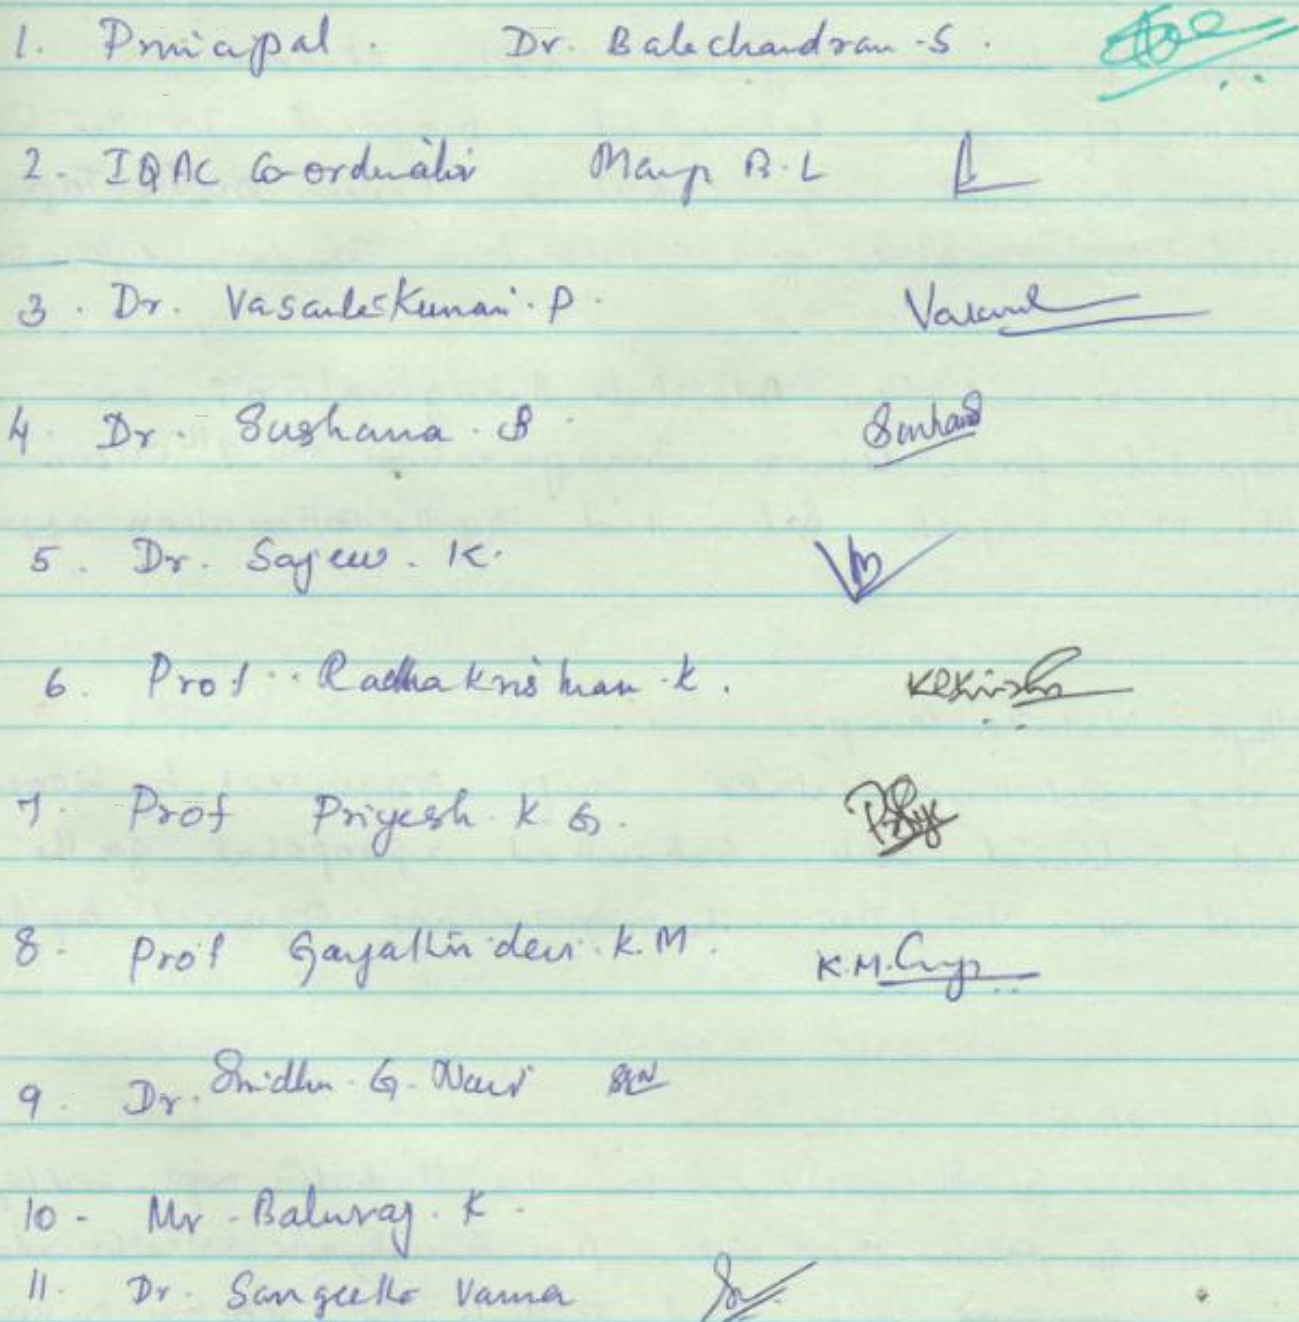 1. Principal. Dr. Balachandran.S.
2. IQAC Co-ordinator Manoj B.L
3. Dr. Vasanthakumari.P.
4. Dr. Sushama.S
5. Dr. Sajeev.K.
6. Prof. Radhakrishnan.K.
7. Prof Priyesh.K.G.
8. Prof Gayathri devi.K.M. K.M.
9. Dr. Sridhu.G.Nair
10- Mr. Baluraj.K.
11. Dr. Sangeetha Varma